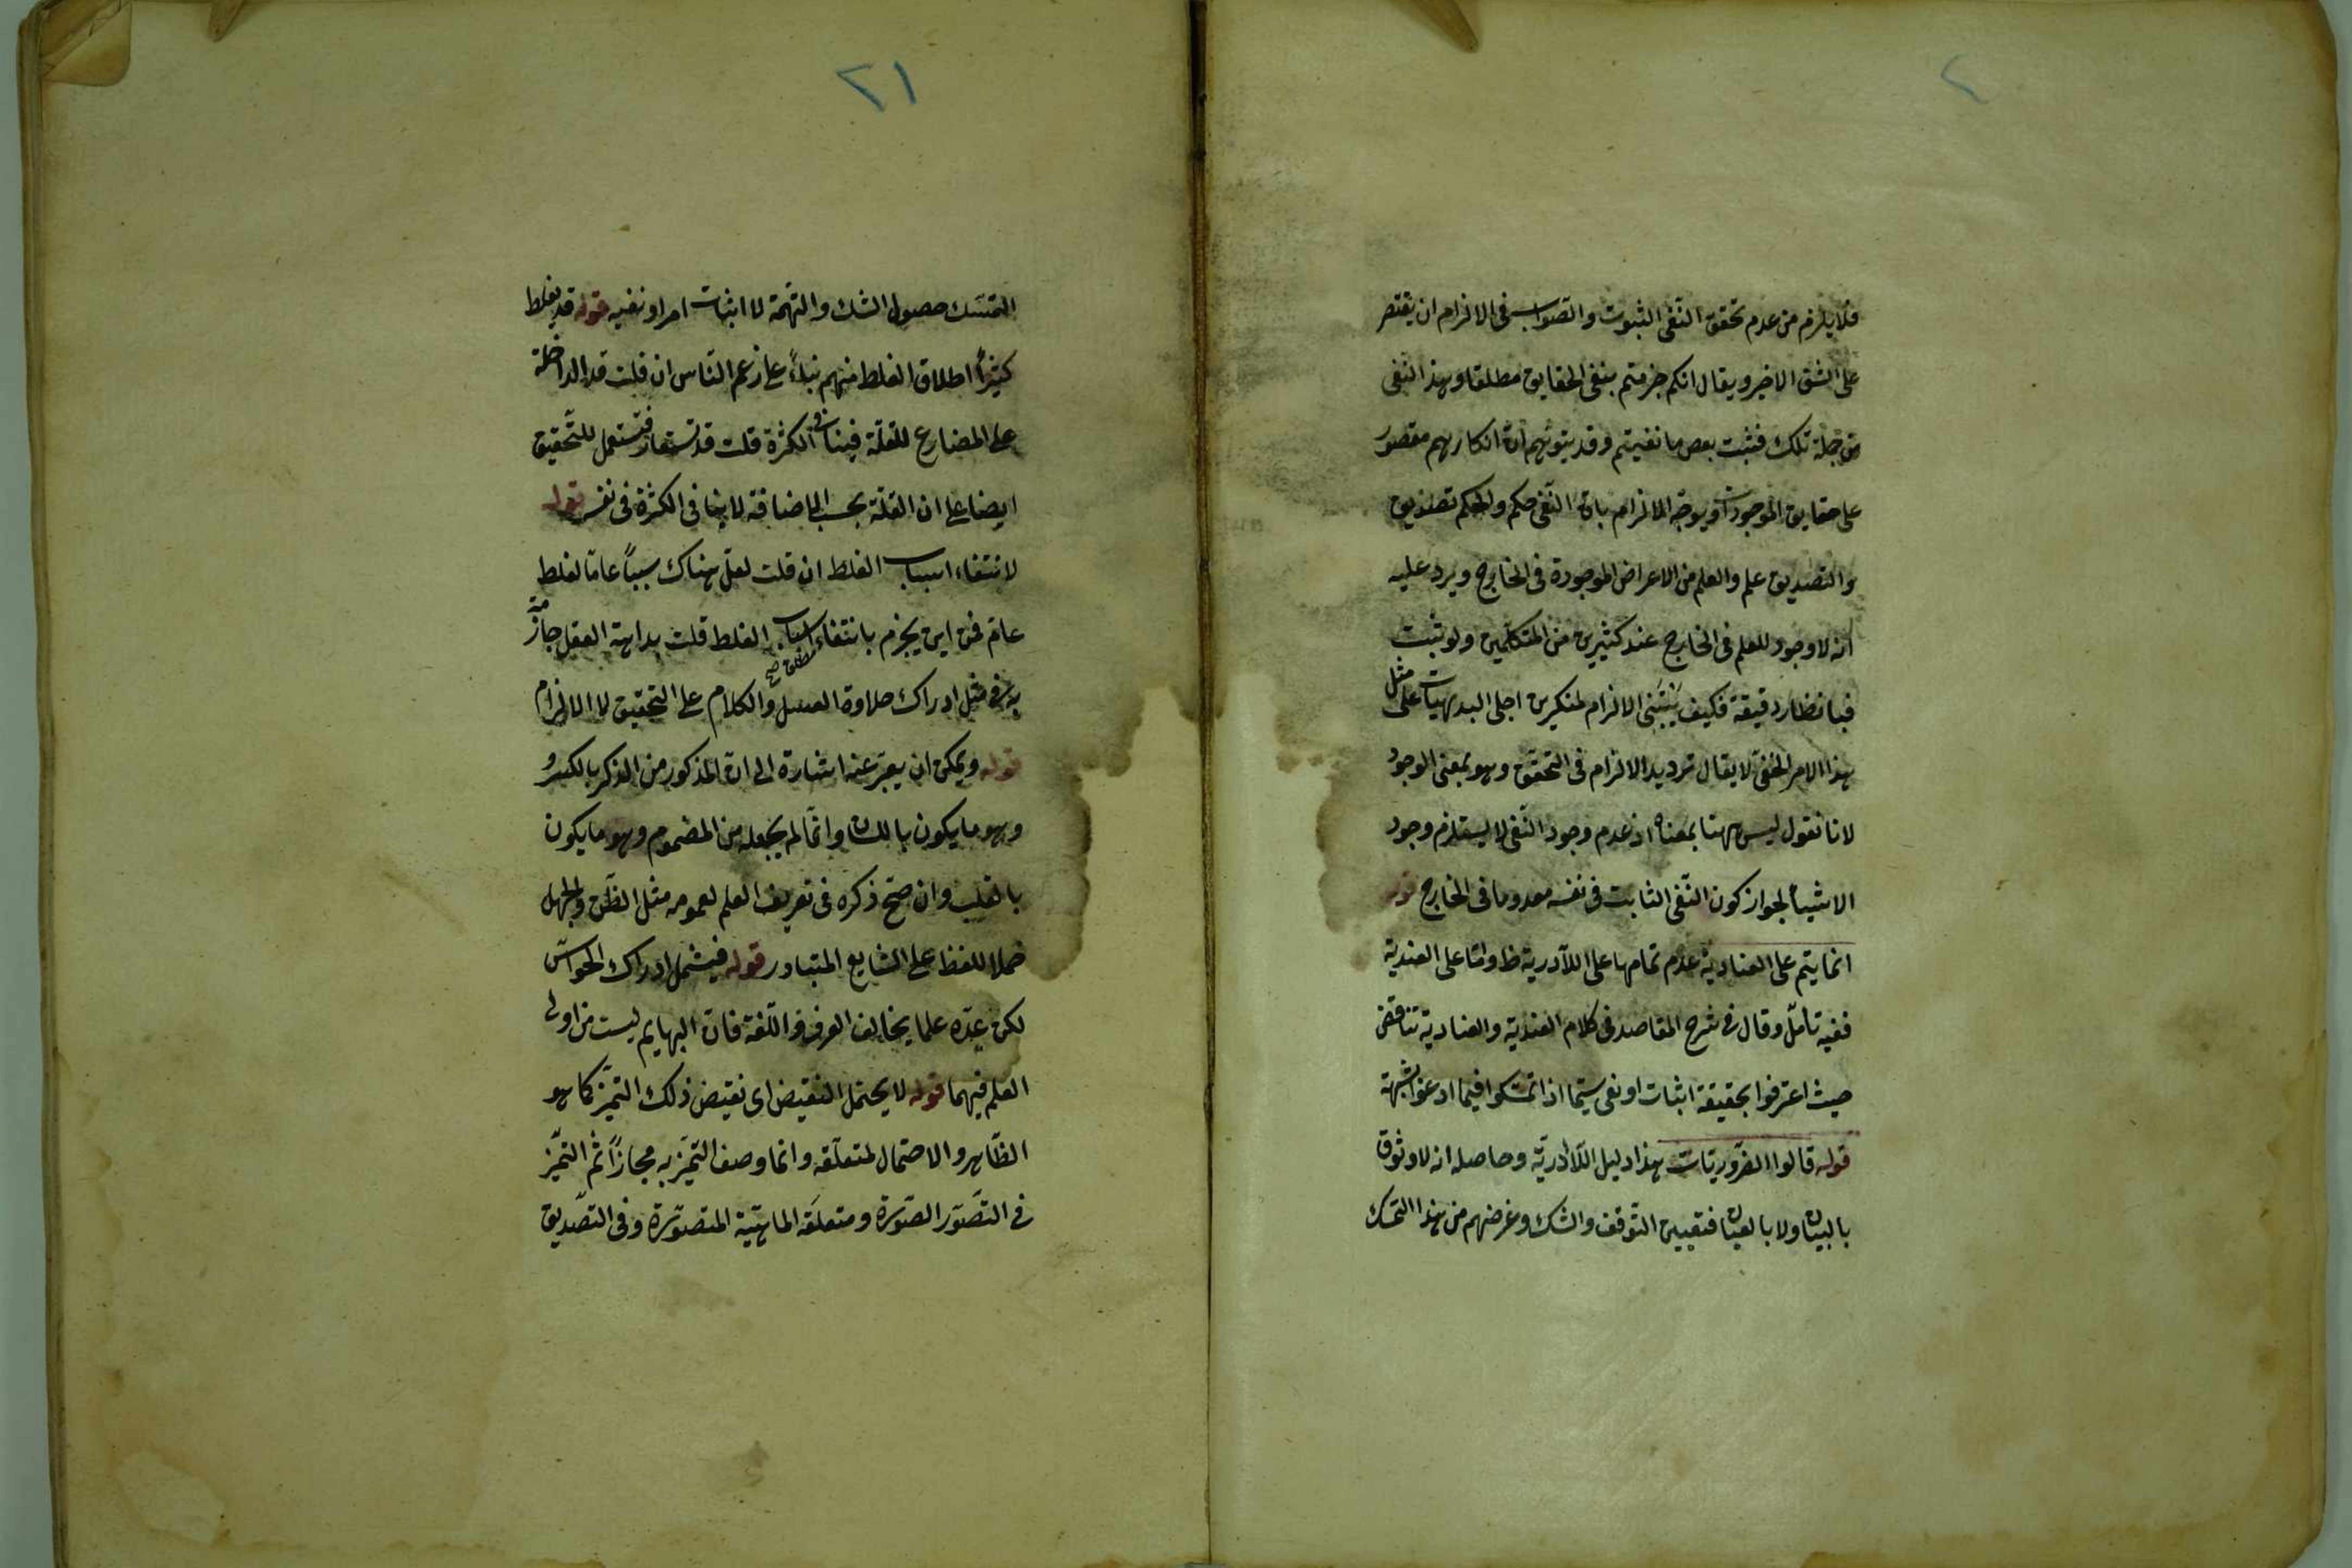 ٢
فلا يلزم من عدم تحقق النفى الثبوت والصواب فى الالزام ان يقتصر
على الشق الاخير ويقال انكم جزمتم بنفى الحقايق مطلقا وهذا النفى
من جملة تلك فثبت بعض ما نفيتم وقد يتوهم ان انكارهم مقصور
على حقايق الموجودات ويوجه الالزام بان النفى حكم والحكم تصديق
والتصديق علم والعلم من الاعراض الموجودة فى الخارج ويرد عليه
انه لا وجود للعلم فى الخارج عند كثيرين من المتكلمين ولو ثبت
فبانظار دقيقة فكيف يبتنى الالزام لمنكرين اجلى البديهيات على مثل
هذا الامر الخفى لا يقال ترديد الالزام فى التحقق وهو بمعنى الوجود
لانا نقول ليس ههنا بمعناه اذ عدم وجود النفى لا يستلزم وجود
الاشياء لجواز كون النفى الثابت فى نفسه معدوما فى الخارج قوله
انما يتم على العنادية عدم تمامها على اللاّدرية ظ واما على العندية
ففيه تامل وقال فى شرح المقاصد فى كلام العندية والعنادية تناقض
حيث اعترفوا بحقيقة اثبات او نفى سيما اذا تمسكوا فيما ادعوا بشبهة
قوله قالوا الضروريات هذا دليل اللاّادرية وحاصله انه لا وثوق
بالبيان ولا بالعيان فتعين التوقف والشك وغرضهم من هذا التمسك
٢١
التمسك حصول الشك والتهمة لا اثبات امر او نفيه قوله قد يغلط
كثيراً اطلاق الغلط منهم بناءً على زعم الناس ان قلت قد الداخلة
على المضارع للقلة فينافى الكثرة قلت قد تستعار فتستعمل للتحقيق
ايضا على ان القلة بحسب الاضافة لا ينافى الكثرة فى نفسه قوله
لانتفاء اسباب الغلط ان قلت لعل هناك سبباً عاما لغلط
عام فمن اين يجزم بانتفاء اسباب الغلط قلت بداهة العقل جازمة
به فى مثل ادراك حلاوة العسل والكلام على التحقيق لا الالزام
مطلق صح
قوله ويمكن ان يعبر عنه اشارة الى ان المذكور من الذكر بالكسر و
وهو ما يكون باللسان وانما لم يجعله من المضموم وهو ما يكون
بالقلب وان صح ذكره فى تعريف العلم لعمومه مثل الظن والجهل
حملا للفظ على الشايع المتبادر قوله فيشمل ادراك الحواس
لكن عده علما يخالف العرف واللغة فان البهايم ليست من اولى
العلم فيهما قوله لا يحتمل النقيض اى نقيض ذلك التميز كما هو
الظاهر والاحتمال لمتعلقه وانما وصف التميز به مجازاً ثم التميز
فى التصور الصورة ومتعلقه الماهية المتصورة وفى التصديق